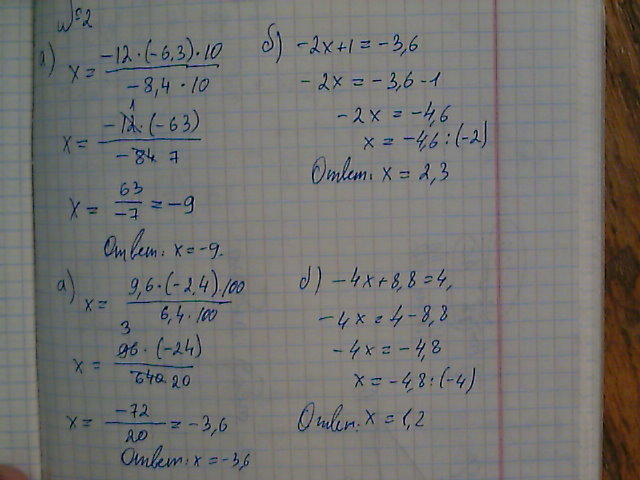 №2
а) x = −12·(−6,3)·10 / −8,4·10
x = −12·(−63) / −84 1 7
x = 63 / −7 = −9
Ответ: x = −9.
б) −2x+1 = −3,6
−2x = −3,6−1
−2x = −4,6
x = −4,6:(−2)
Ответ: x = 2,3
а) x = 9,6·(−2,4)·100 / 6,4·100
x = 3 96·(−24) / 640 20
x = −72 / 20 = −3,6
Ответ: x = −3,6
б) −4x+8,8=4,
−4x = 4−8,8
−4x = −4,8
x = −4,8:(−4)
Ответ: x = 1,2